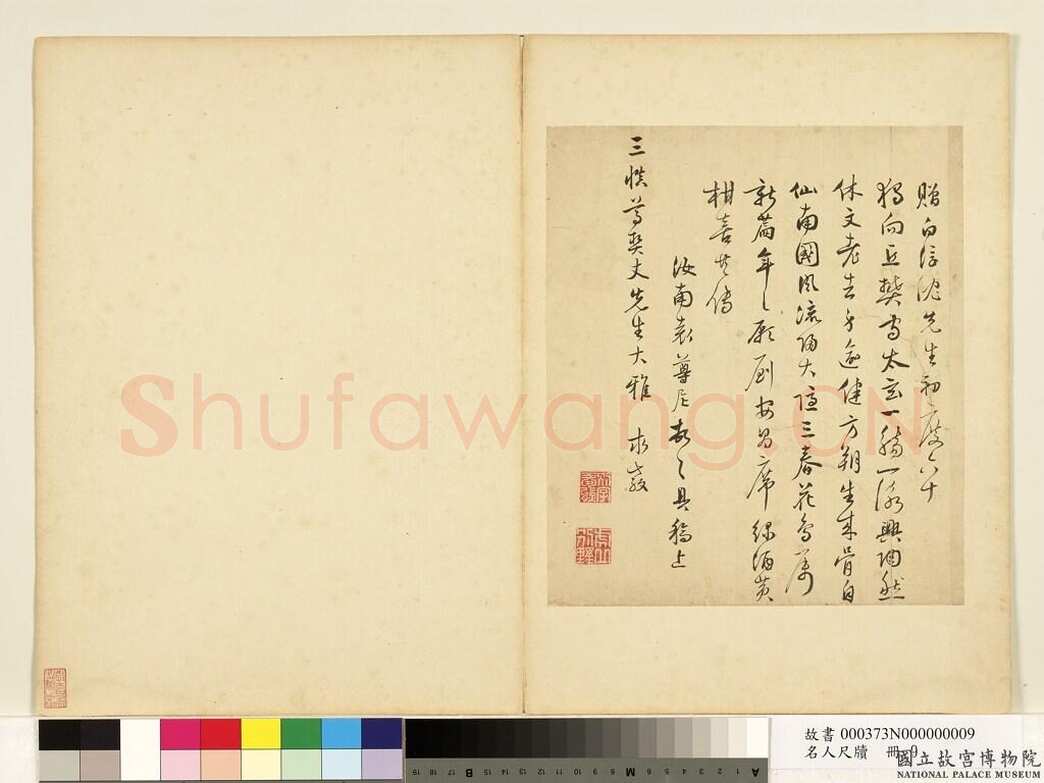 贈白濱沈先生初度六十
獨向丘樊守太玄一觴一詠興陶然
休文老去身逾健方朔生來骨自
仙南國風流歸大隱三春花鳥屬
新篇年年願刷安昌席綠酒黃
柑喜共傳
汝南袁尊尼頓首具稿上
三槐尊契丈先生大雅 求教
Shufawang.CN
故書 000373N000000009
名人尺牘 冊 9
國立故宮博物院
NATIONAL PALACE MUSEUM